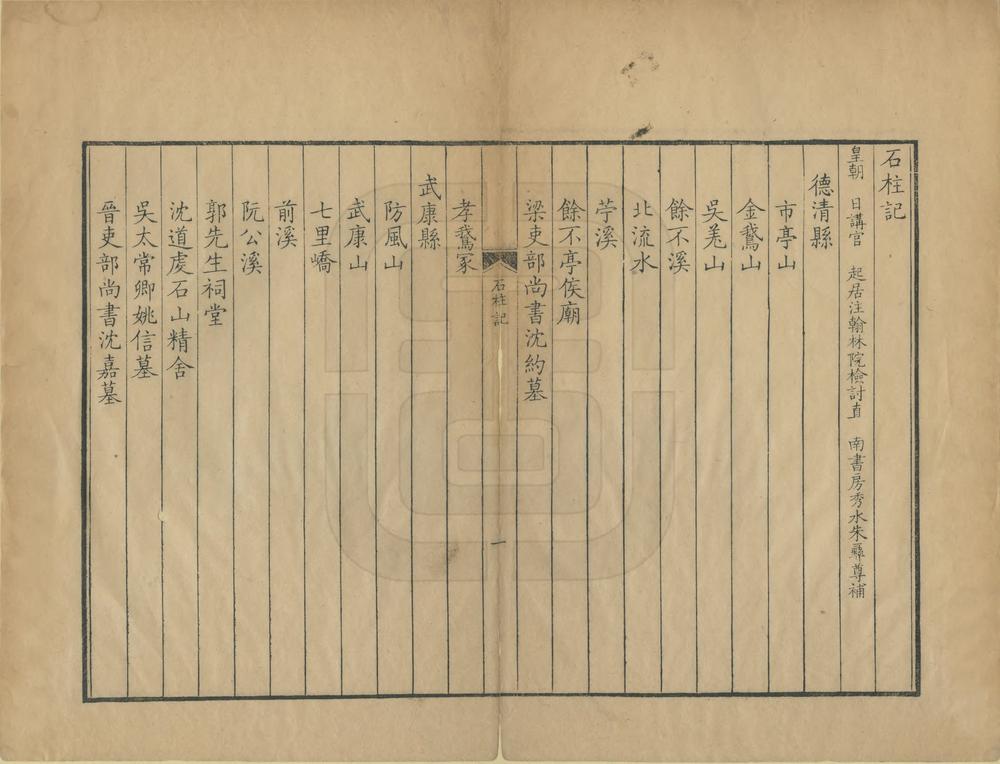 石柱記
皇朝 日講官 起居注翰林院檢討直 南書房秀水朱彞尊補
德清縣
市亭山
金鵞山
吳羌山
餘不溪
北流水
苧溪
餘不亭侯廟
梁吏部尚書沈約墓
石柱記
一
孝鵞冢
武康縣
防風山
武康山
七里嶠
前溪
阮公溪
郭先生祠堂
沈道虔石山精舍
吳太常卿姚信墓
晉吏部尚書沈嘉墓